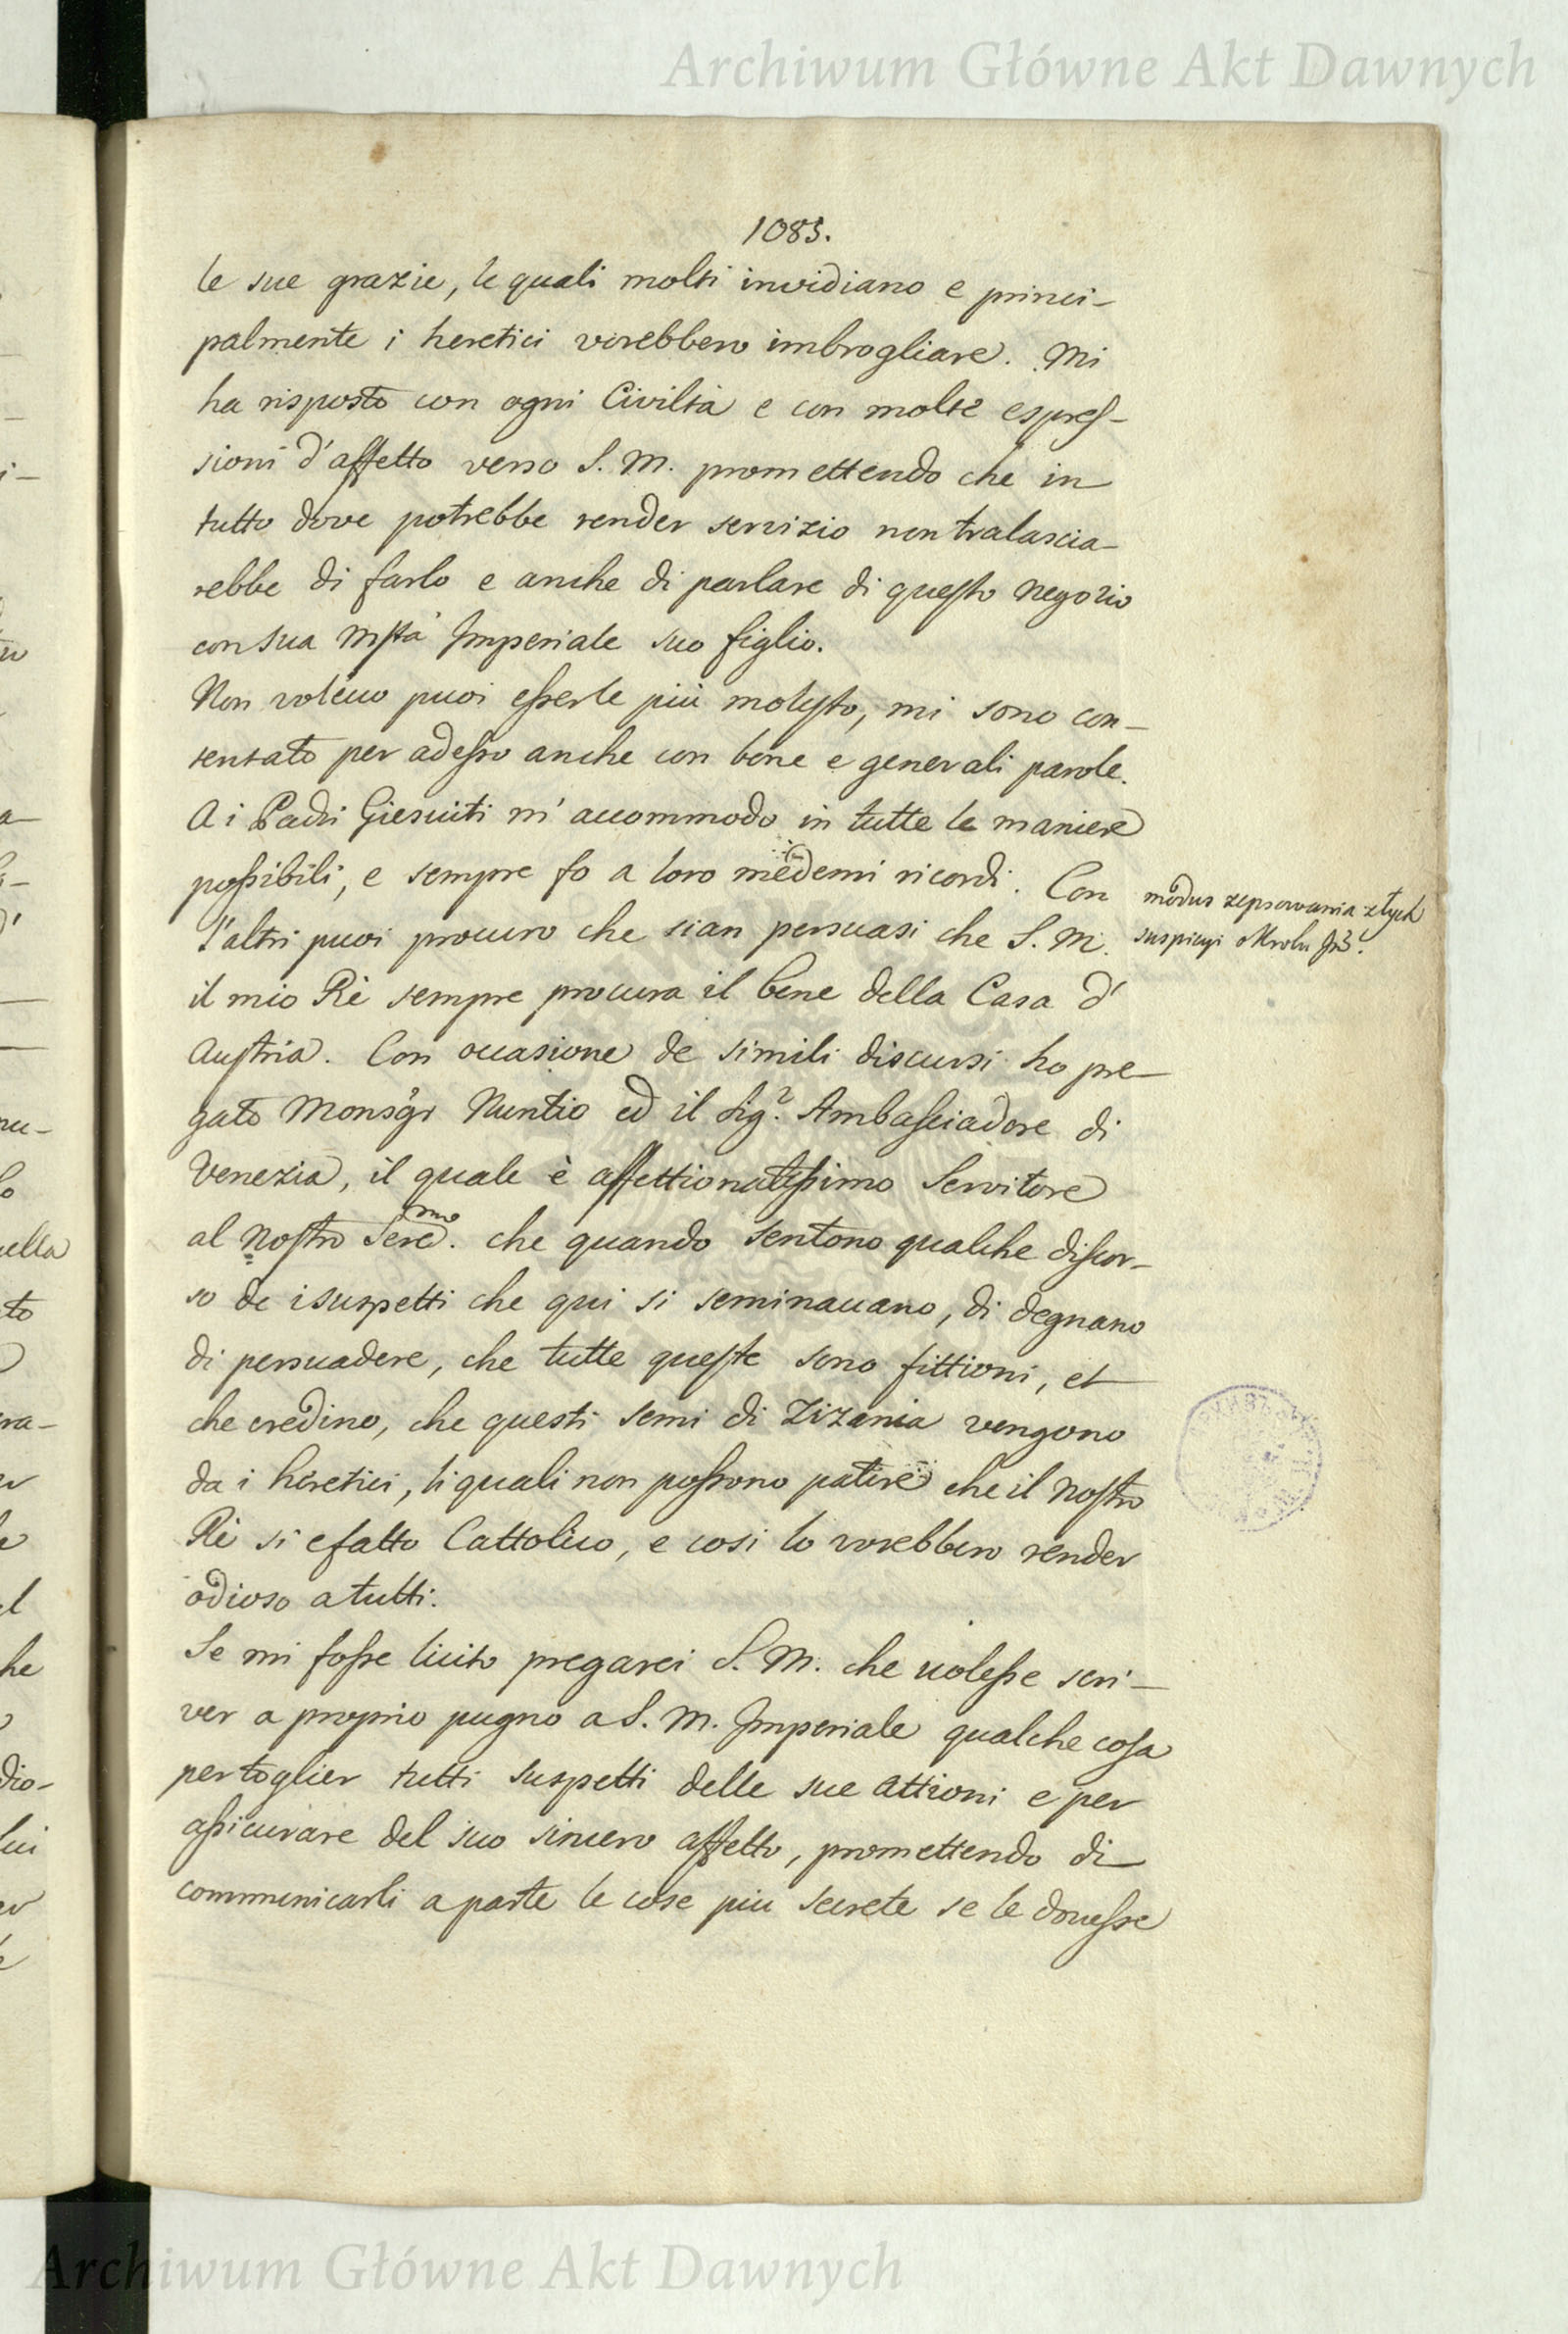 Archiwum Główne Akt Dawnych
1085.
le sue grazie, le quali molti invidiano e princi-
palmente i heretici vorebbero imbrogliare. Mi
ha risposto con ogni Civiltà e con molte espres-
sioni d'affetto verso S. M. promettendo che in
tutto dove potrebbe render servizio non tralascia-
rebbe di farlo e anche di parlare di questo negozio
con sua Mstà Imperiale suo figlio.
Non voleuo puoi esserle più molesto, mi sono con-
tentato per adesso anche con bone e generali parole.
A i Padri Giesuiti m'accommodo in tutte le maniere
possibili, e sempre fo a loro medemi ricordi. Con
l'altri puoi procuro che sian persuasi che S. M.
modus zepsowania złych
suspicyi o Krolu
il mio Rè sempre procura il bene della Casa d'
Austria. Con occasione de simili discursi ho pre-
gato Monsgr Nuntio ed il Sigr. Ambasciadore di
Venezia, il quale è affettionatissimo Servitore
al Nostro Sere.mo che quando sentono qualche discor-
so de i suspetti che qui si seminauano, di degnano
di persuadere, che tutte queste sono fittioni, et
che credino, che questi semi di Zizania vengono
da i heretici, li quali non possono patire che il Nostro
Rè si e fatto Cattolico, e cosi lo vorebbero render
odioso a tutti.
Se mi fosse licito pregarei S. M. che uolesse scri-
ver a proprio pugno a S. M. Imperiale qualche cosa
per toglier tutti suspetti delle sue attioni e per
assicurare del suo sincero affetto, promettendo di
communicarli a parte le cose piu secrete se le douesse
Archiwum Główne Akt Dawnych